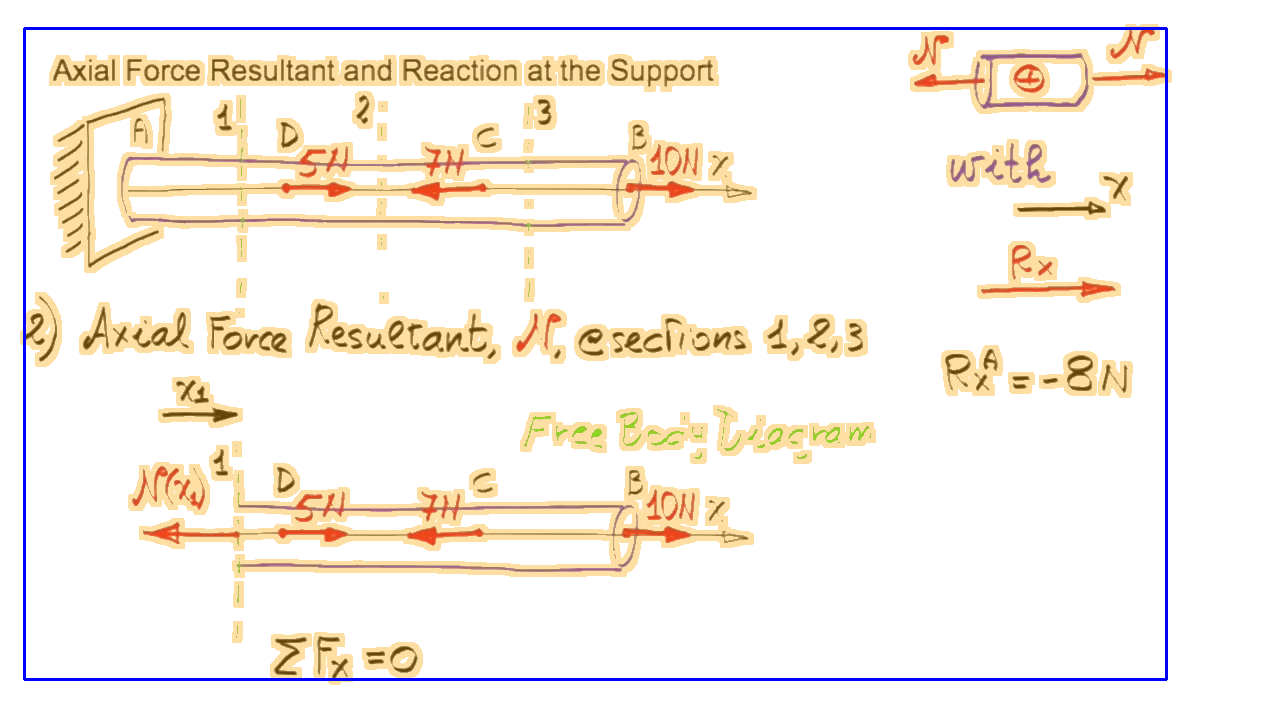 Axial Force Resultant and Reaction at the Support
N N
1 2 3
A D C B
5N 7N 10N x
with
x
Rx
2) Axial Force Resultant, N, @sections 1,2,3
RxA = -8N
x1
Free Body Diagram
1 D C B
N(x1) 5N 7N 10N x
ΣFx = 0